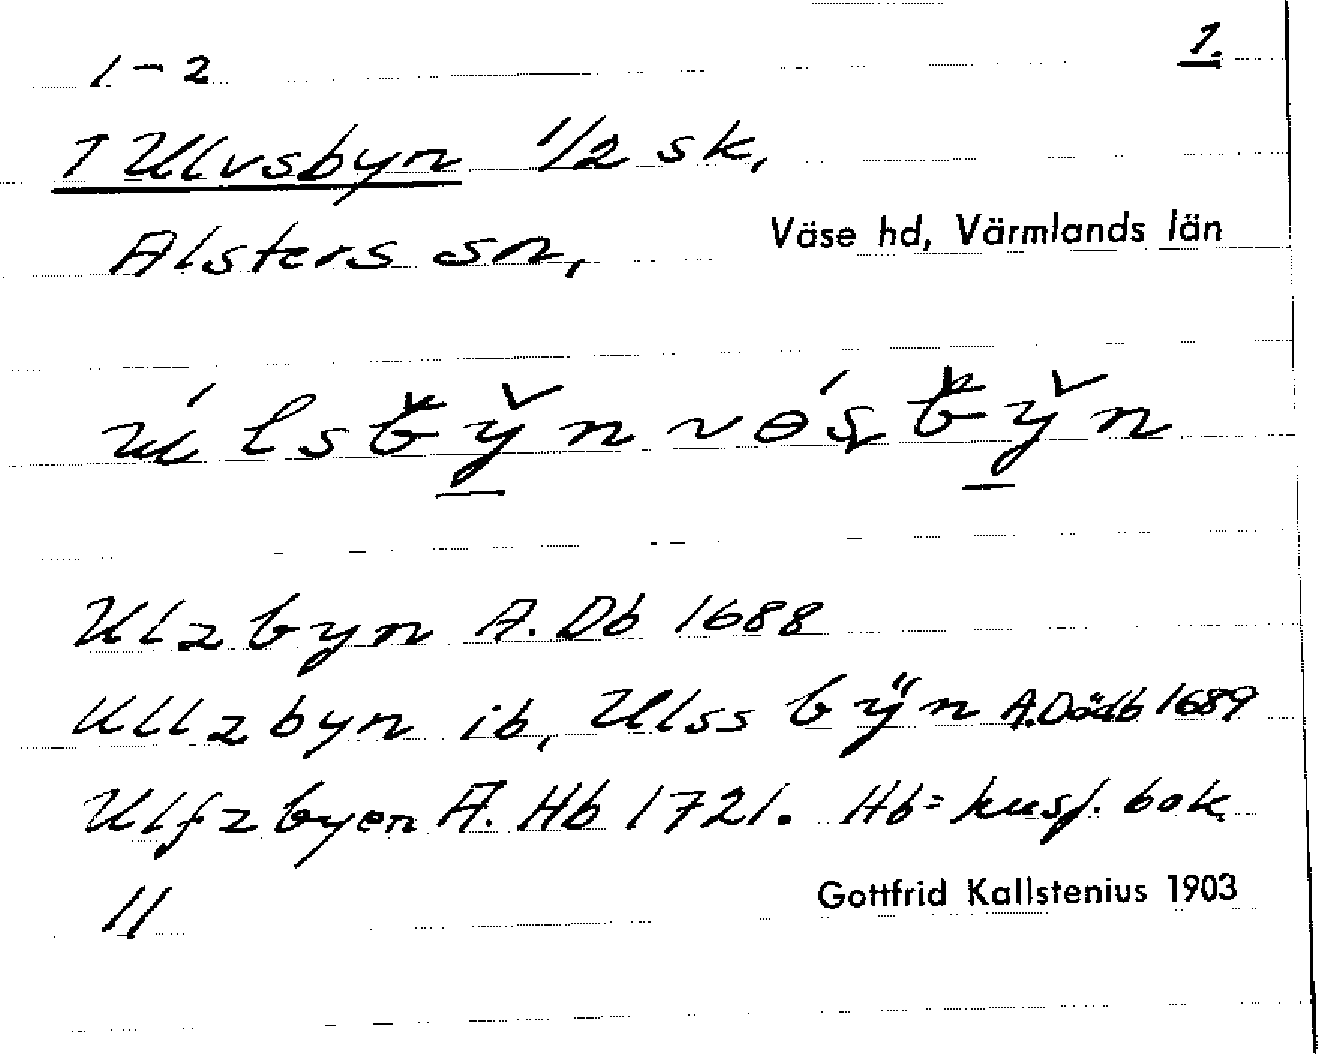 1-2 1.
1 Ulvsbyn 1/2 sk,
Alsters sn, Väse hd, Värmlands län
Ulzbyn A. Db 1688
Ullzbyn ib, Ulss bÿn A.Dödb 1689
Ulfzbyen A. Hb 1721. Hb= husf. bok
11 Gottfrid Kallstenius 1903